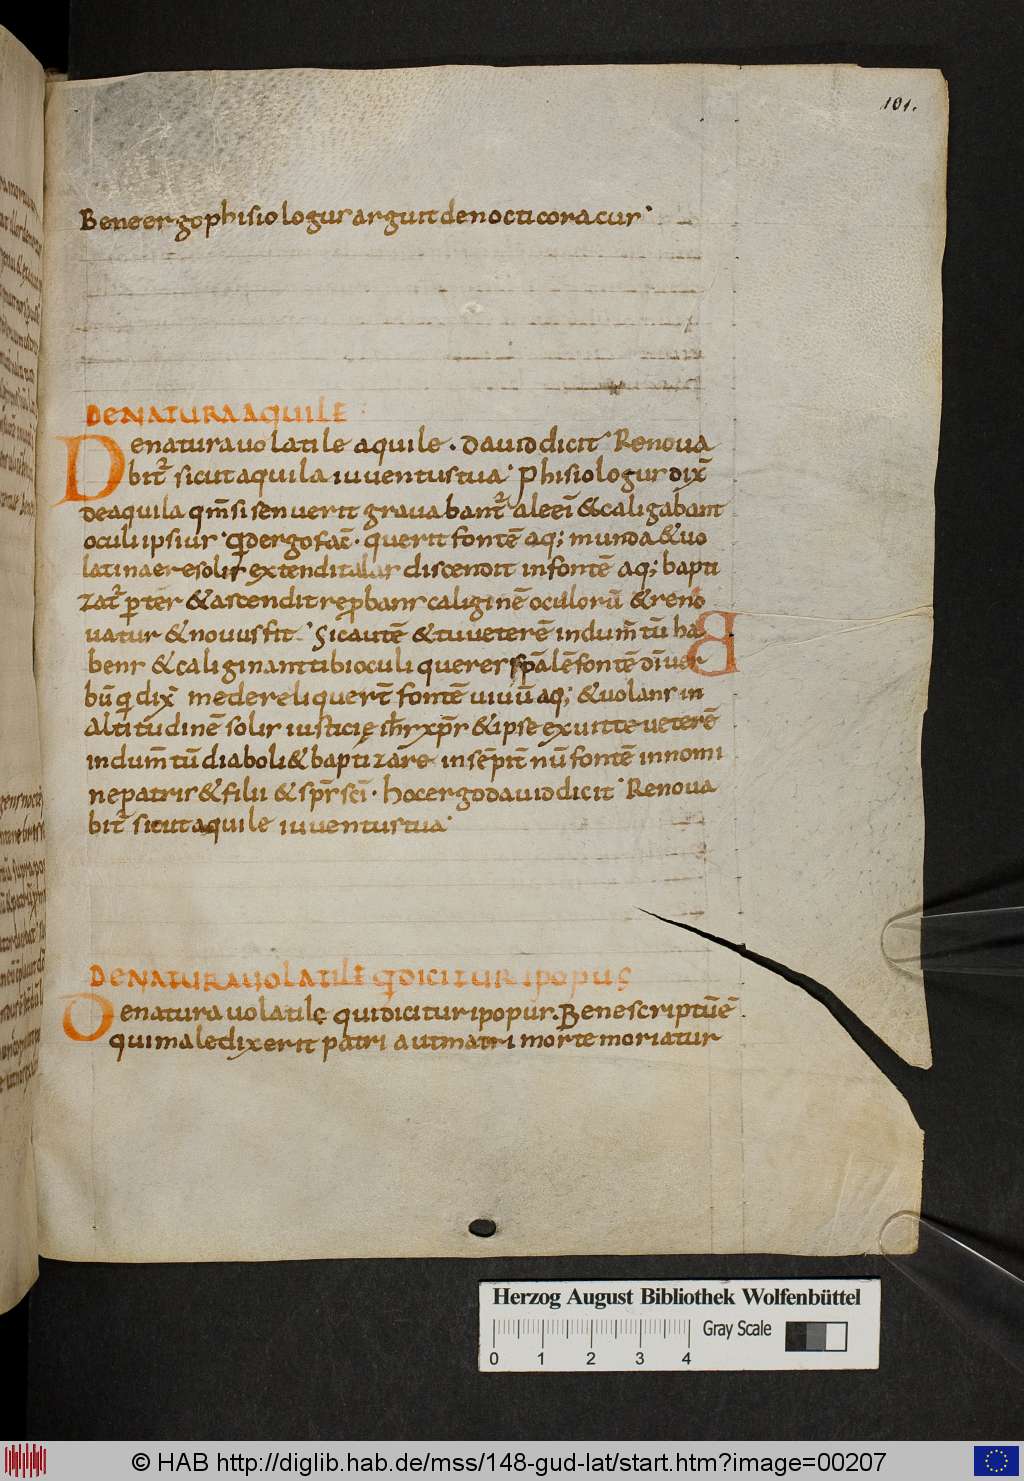 101.
Beneergophisiologus arguit denocticoracus
DENATURAAQUILE
Denatura volatile aquile · david dicit Renova
bit᷑ sicut aquila iuventus tua Phisiologus dix̄
de aquila qm̄ si senuerit gravabant᷑ ale eī & caligabant
oculi ipsius · qd ergo fac̄ · querit fontē aq; munda & vo
lat in aere solis extendit alas discendit in fontē aq; bapti
zat᷑ p ter & ascendit reprbans caliginē oculorū & reno
vatur & novus fit Sic autē & tu veterē indum̄tū ha
bens & caliginant tibi oculi queres spālē fontē dī ver
bū qi dix̄ me dereliquer̄t fontē vivū aq; & volans in
altitudinē solis iusticię ih̄s xp̄s & ipse exuit te veterē
indum̄tū diaboli & baptizāre in sēpit̄nū fontē in nomi
ne patris & filii & sp̄s sc̄i · hoc ergo david dicit Renova
bit᷑ sicut aquile iuventus tua
DENATURAVOLATILE qdICITUR IPOPUS
Denatura volatilę qui dicitur ipopus. Bene scriptū ē
qui maledixerit patri aut matri morte moriatur
B
Herzog August Bibliothek Wolfenbüttel
Gray Scale
0 1 2 3 4
© HAB http://diglib.hab.de/mss/148-gud-lat/start.htm?image=00207